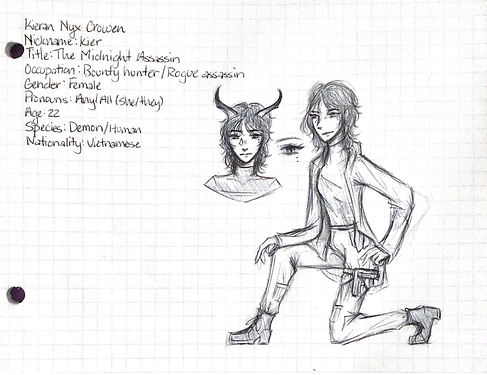 Kieran Nyx Crowen
Nickname: Kier
Title: The Midnight Assassin
Occupation: Bounty hunter/Rogue assassin
Gender: Female
Pronouns: Any/All (she/they)
Age: 22
Species: Demon/Human
Nationality: Vietnamese